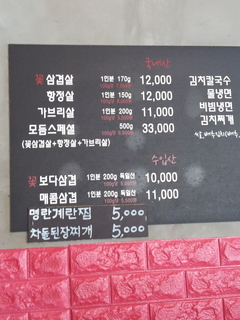 국내산
꽃삼겹살 1인분 170g 12,000
항정살 1인분 150g 12,000
가브리살 1인분 200g 11,000
모듬스페셜 500g 33,000
(꽃삼겹살+항정살+가브리살)
수입산
꽃보다삼겹 1인분 200g 독일산 10,000
매콤삼겹 1인분 200g 독일산 11,000
명란계란찜 5,000
차돌된장찌개 5,000
김치칼국수
물냉면
비빔냉면
김치찌개